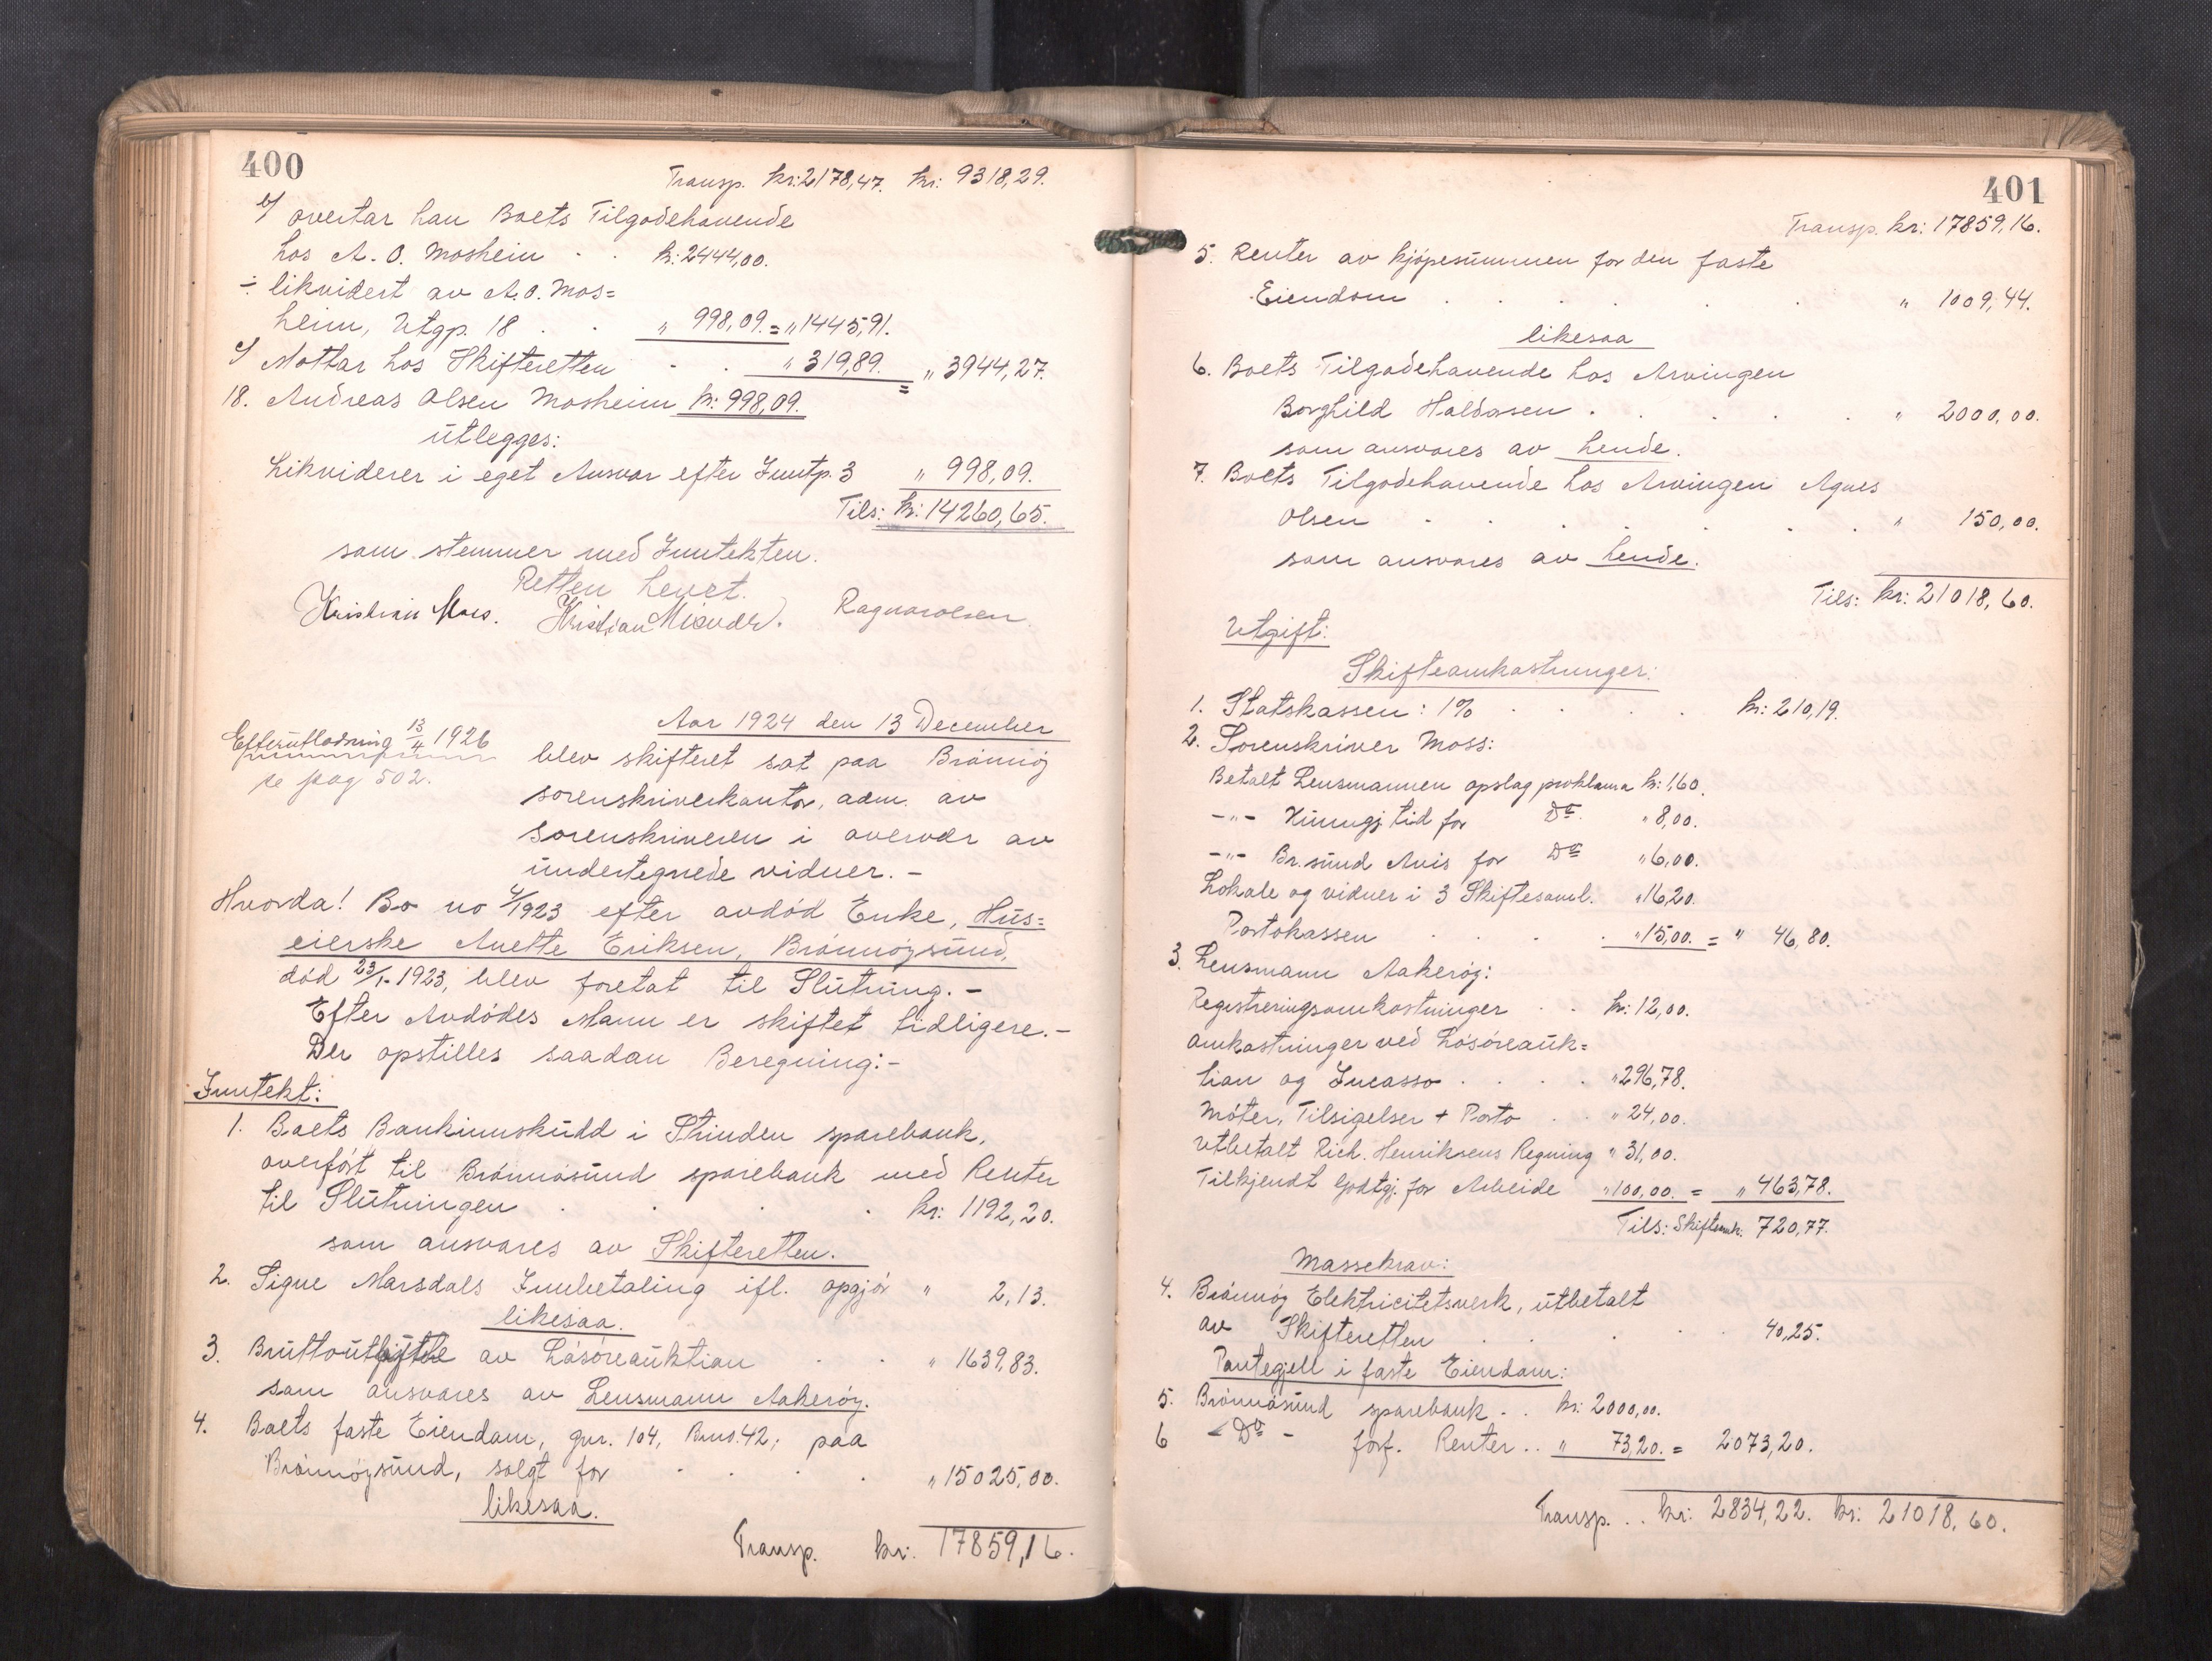 400
Transp. kr: 2178,47. kr: 9318,29.
overtar han Boets Tilgodehavende
hos A. O. Mosheim . . kr: 2444,00.
÷ likvidert av A. O. Mos=
heim, Utgp. 18 . . " 998,09. = " 1445,91.
Mottar hos Skifteretten - . " 319,89. = " 3944,27.
18. Andreas Olsen Mosheim kr: 998,09.
utlegges:
Likviderer i eget Ansvar efter Inntp. 3 " 998,09.
Tils: kr: 14260,65.
som stemmer med Inntekten.
Retten hevet.
Kristian Moss. Kristian Ragnar Olsen
Aar 1924 den 13 December
Efterutlodning 13/4 1926
se pag 502.
blev skifteret sat paa Brønnøy
sorenskriverkontor, adm. av
sorenskriveren i overvær av
undertegnede vidner. -
Hvorda! Bo no 4/1923 efter avdød Enke, Hus=
eierske Anette Eriksen, Brønnøysund,
død 23/1-1923, blev foretat til Slutning. -
Efter Avdødes Mann er skiftet tidligere. -
Der opstilles saadan Beregning: -
Inntekt:
1. Boets Bankinnskudd i Strinden sparebank,
overført til Brønnøsund sparebank med Renter
til Slutningen . . . . kr: 1192,20.
som ansvares av Skifteretten.
2. Signe Marsdals Innbetaling ifl. opgjør " 2,13.
likesaa.
3. Bruttoutbytte av Løsøreauktion . . " 1639,83.
som ansvares av Lensmann Aakerøy.
4. Boets faste Eiendom, gnr. 104, Brno. 42, paa
Brønnøysund, solgt for - . . . " 15025,00.
likesaa.
Transp. kr: 17859,16.
401
Transp. kr: 17859,16.
5. Renter av kjøpesummen for den faste
Eiendom . . . . . " 1009,44.
likesaa
6. Boets Tilgodehavende hos Arvingen
Borghild Haldorsen . . . . . " 2000,00.
som ansvares av hende.
7. Boets Tilgodehavende hos Arvingen Agnes
Olsen . . . . . . " 150,00.
som ansvares av hende.
Tils: kr: 21018,60.
Utgift:
Skifteomkostninger:
1. Statskassen: 1% . . . . kr: 210,19.
2. Sorenskriver Moss:
Betalt Lensmannen opslag proklama kr: 1,60.
-"- Kunngj. tid for Do " 8,00.
-"- Br.sund Avis for Do " 6,00.
Lokale og vidner i 3 Skiftesaml. " 16,20.
Portokassen . . . . " 15,00. = " 46,80.
3. Lensmann Aakerøy:
Registreringsomkostninger . . kr: 12,00.
omkostninger ved Løsøreauk=
tion og Incasso . . . . " 296,78.
Møter, Tilsigelser + Porto . . " 24,00.
Utbetalt Rich. Henriksens Regning " 31,00.
Tilkjendt Godtgj. for Arbeide " 100,00. = " 463,78.
Tils: Skifteomk. 720,77.
Massekrav:
4. Brønnøy Elektricitetsverk, utbetalt
av Skifteretten . . . . . 40,25.
Pantegjell i faste Eiendom:
5. Brønnøsund sparebank . . kr: 2000,00.
6 - Do - forf. Renter . . " 73,20. = 2073,20.
Transp. . . kr: 2834,22. kr: 21018,60.